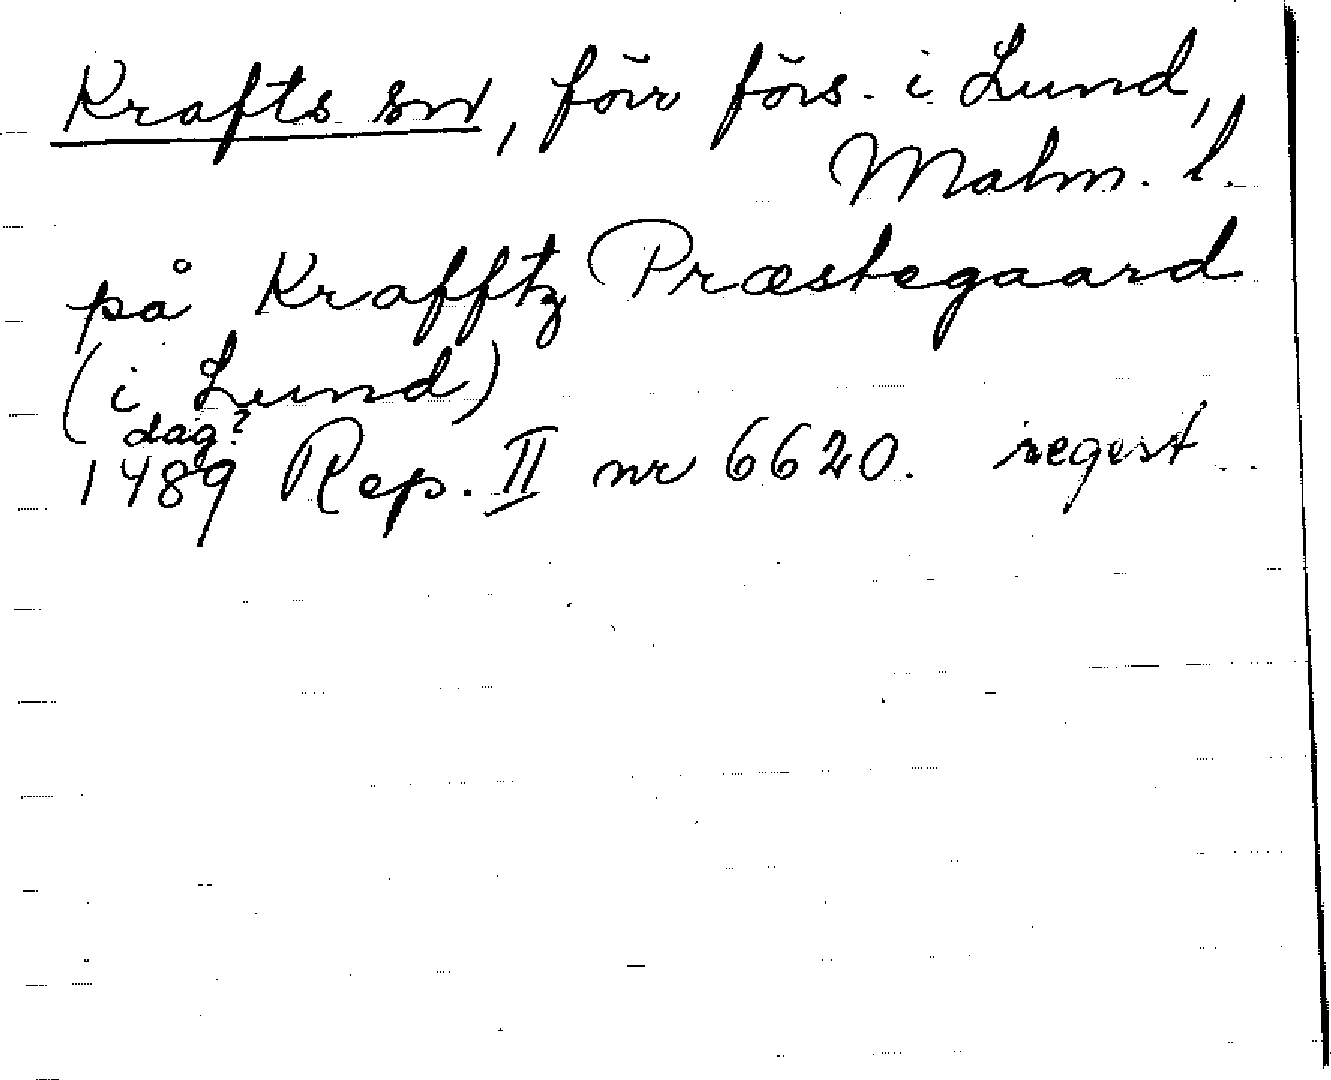 Krafts sn, förr förs. i Lund,
Malm. l.
på Krafftz Præstegaard
(i Lund)
dag?
1489 Rep. II nr 6620. regest